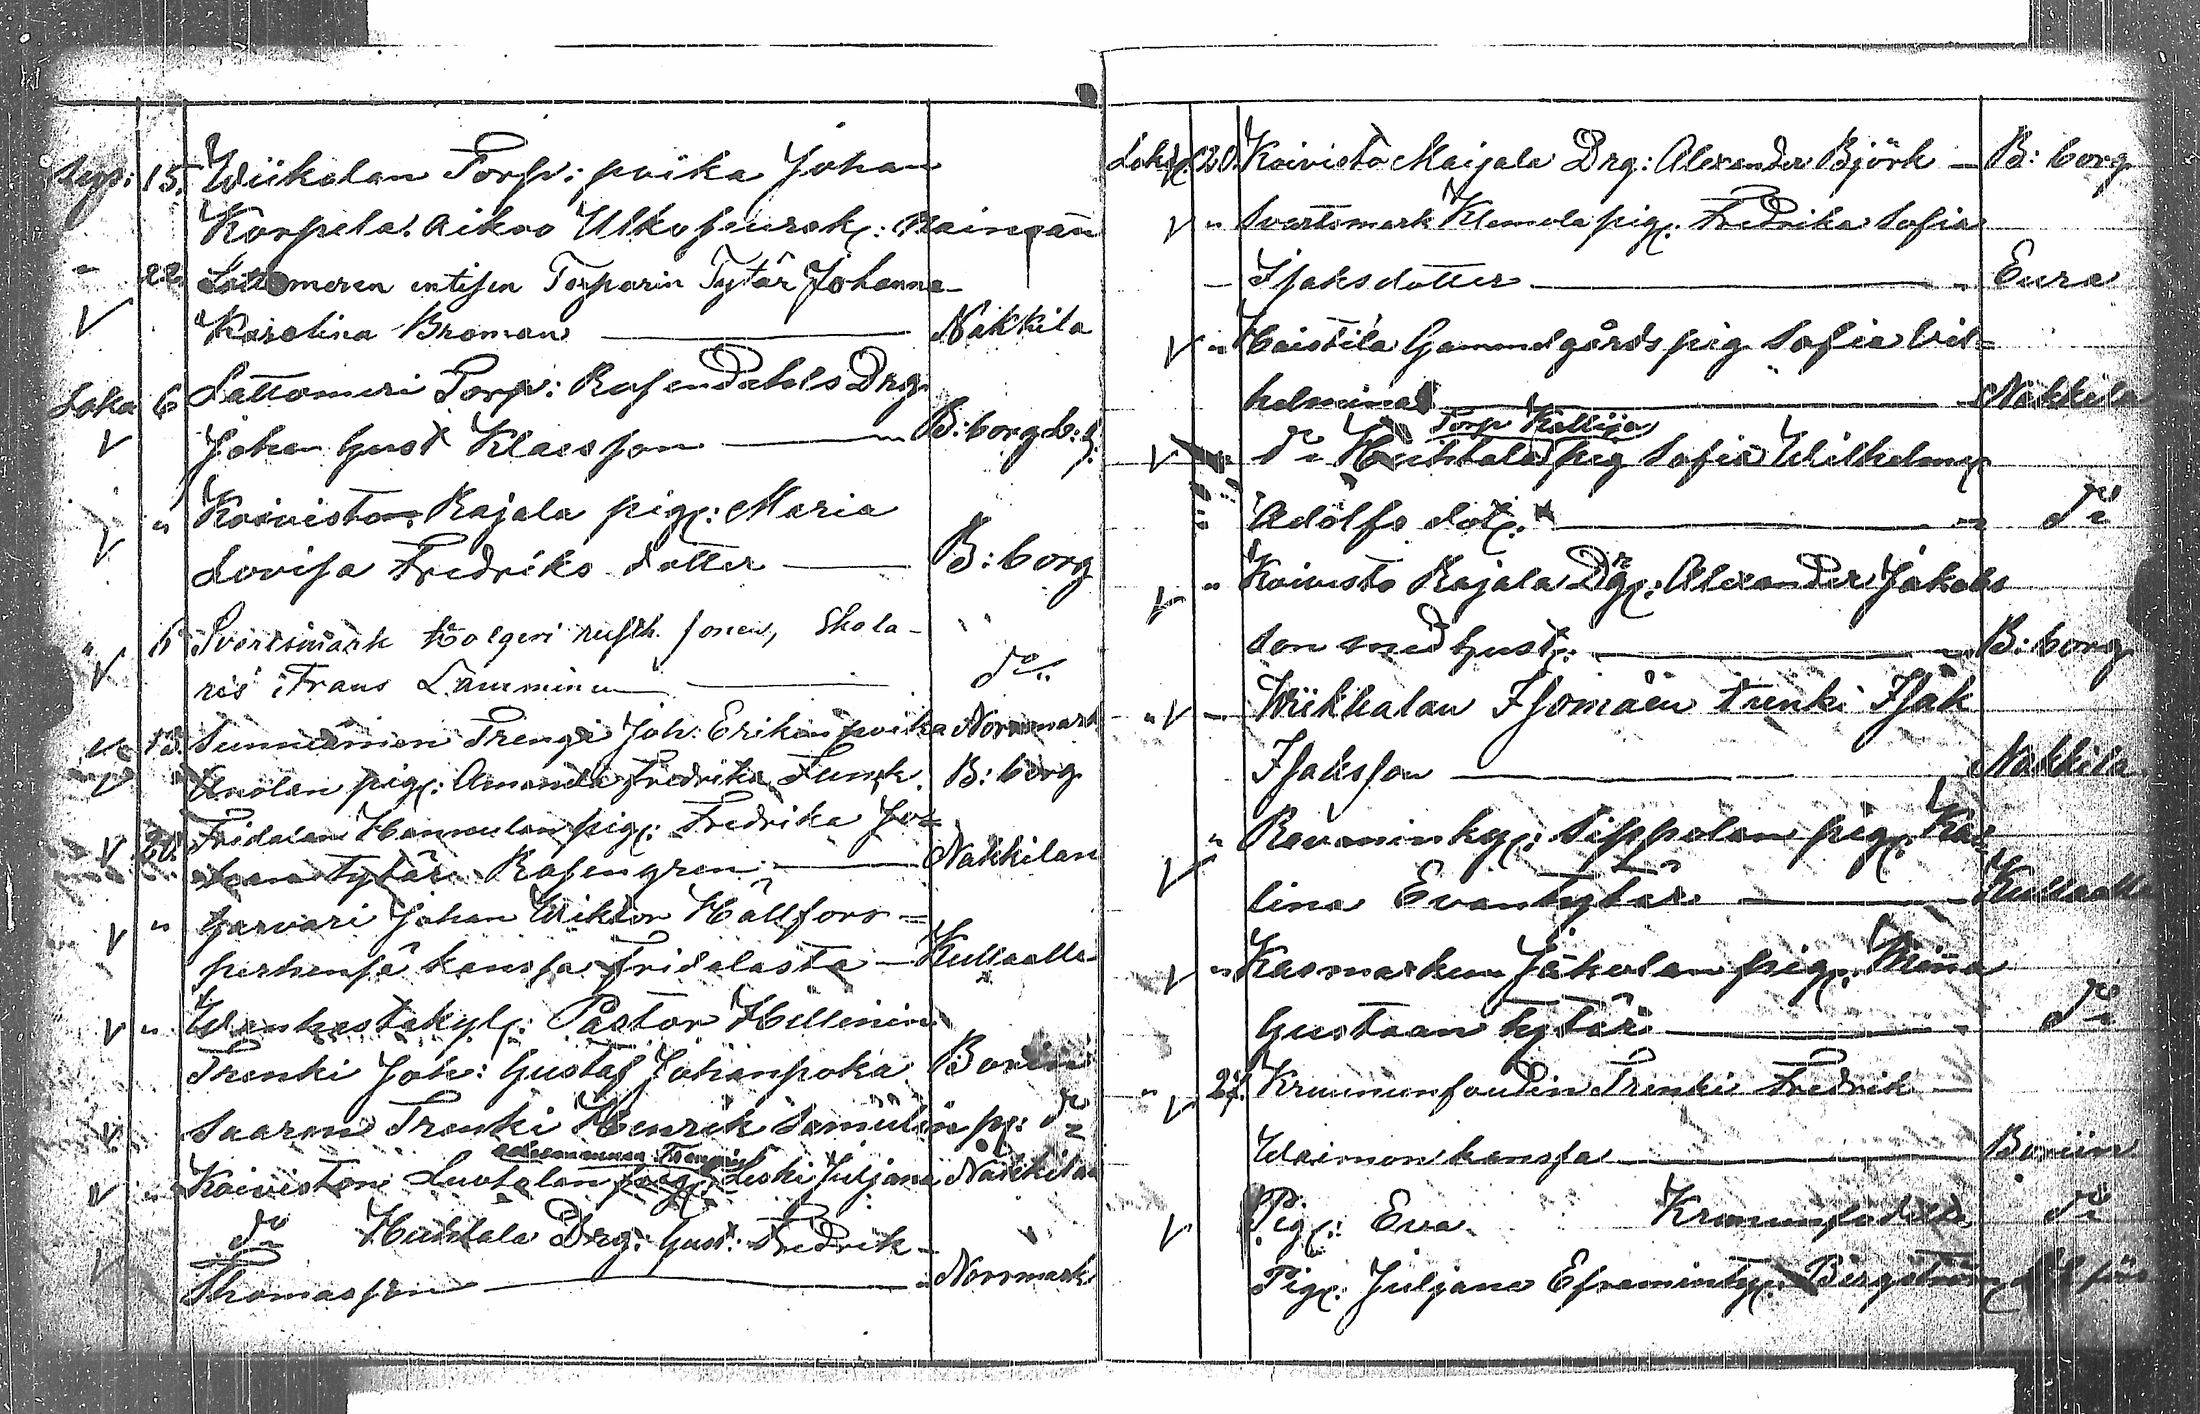 Syys: 15. Wiikalan Torp: poika Johan
Korpela. aikoo Ulkoseurak: Nainaan
" 22 Lattomeren entisen Torparin Tytär Johanna
Karolina Broman — Nakkila
Loka 6 Lattomeri Torp: Rosendahls Drg.
Johan Gust Klasson — B:borg
" Koivisto Rajala pig: Maria
Lovisa Fredriks dotter — B:borg
" Svartsmark Holgeri rusth. sonen, Skola-
ris Frans Lamminen — do
13. Sunniemen Trengi Joh: Erikin poika Norrmark
Anolan pig: Amanda Fredrika Funck. B:borg
20. Fridalan Hannulan pig: Fredrika Jo-
han tytär Rosengren — Nakkilan
" Garvari Johan Wiktor Hällfors
perhensä kanssa Fridalasta — Kullaalle
" Wanhastakylä: Pastor Hellenin
Trenki Joh: Gustaf Johanpoika Boriin
Saaren Trenki Henrik Samulin p: do
" Koiviston Luotolan Leski Juljana Nakkilan
do Huhtala Drg: Gust: Fredrik
Thomasson — Norrmark
Lok: 20. Koivisto Maijala Drg: Alexander Björk — B:borg
" Svartsmark Klemola pig: Fredrika Sofia
Isaksdotter — Eura
" Haistila Gammelgårds pig Sofia Vil-
helmina — Nakkila
Torp Kallija
do Huhtala pig Sofia Wilhelmina
Adolfs dot: — do
" Koivisto Rajala Drg: Alexander Jakobs
son med hust: — B:borg
" Wiikkalan Isomäen trenki Isak
Isaksson — Nakkila
" Ravanin ky: Sippolan pig: Ka-
lina Evantytär — Kullaalle
" Kasmarkun Jäkolan pig: Miina
Gustaan tytär — do
" 27. Kruununfoudin Trenki Fredrik
Waimon kanssa — Boriin
Pig: Eva do
Pig: Juljana Eframinty: Bergström